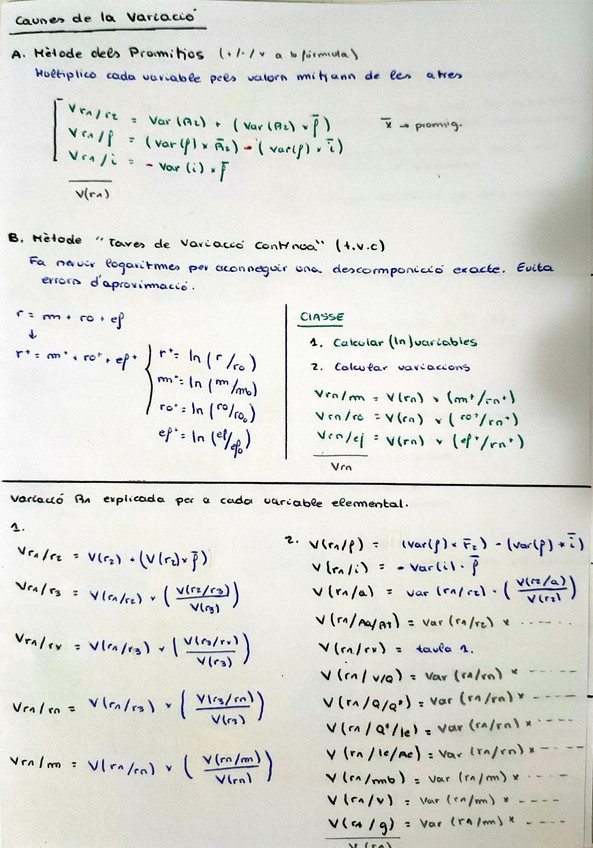 Causes de la Variació
A. Mètode dels Promitjos (+/-/× a b fórmula)
Multiplico cada variable pels valors mitjans de les altres
Vr1/r2 = Var (r2) + (Var (r2) × p̄)
Vr1/p = (var(p) × r̄2) - (var(p) × ī)
Vr1/i = - Var (i) × p̄
V(r1)
x̄ → promig.
B. Mètode "Taxes de Variació Contínua" (t.v.c)
Fa servir logaritmes per aconseguir una descomposició exacte. Evita
errors d'aproximació.
r = m + ro + ef
↓
r* = m* + ro* + ef*
r* = ln (r/r0)
m* = ln (m/m0)
ro* = ln (ro/ro0)
ef* = ln (ef/ef0)
CLASSE
1. Calcular (ln) variables
2. Calcular variacions
Vrn/m = V(rn) × (m*/rn*)
Vrn/ro = V(rn) × (ro*/rn*)
Vrn/ef = V(rn) × (ef*/rn*)
Vrn
Variació R1 explicada per a cada variable elemental.
1.
Vr1/r2 = V(r2) + (V(r2) × p̄)
Vr1/r3 = V(r1/r2) × (V(r2/r3)/V(r3))
Vr1/rx = V(r1/r3) × (V(r3/rx)/V(r3))
Vr1/rn = V(r1/r3) × (V(r3/rn)/V(r3))
Vr1/m = V(r1/rn) × (V(rn/m)/V(rn))
2. V(r1/p) = (var(p) × r̄2) - (var(p) × ī)
V(r1/i) = - Var(i) · p̄
V(r1/a) = var (r1/r2) · (V(r2/a)/V(r2))
V(r1/Aa/AT) = Var (r1/r2) × -----
V(r1/rx) = taula 1.
V(r1/v/Q) = Var (r1/rn) × -----
V(r1/Q/Q*) = Var (r1/rn) × -----
V(r1/Q*/Ie) = Var (r1/rn) × -----
V(r1/Ie/Ae) = Var (r1/rn) × -----
V(r1/mb) = Var (r1/m) × -----
V(r1/v) = Var (r1/m) × -----
V(r1/g) = Var (r1/m) × -----
V(r1)